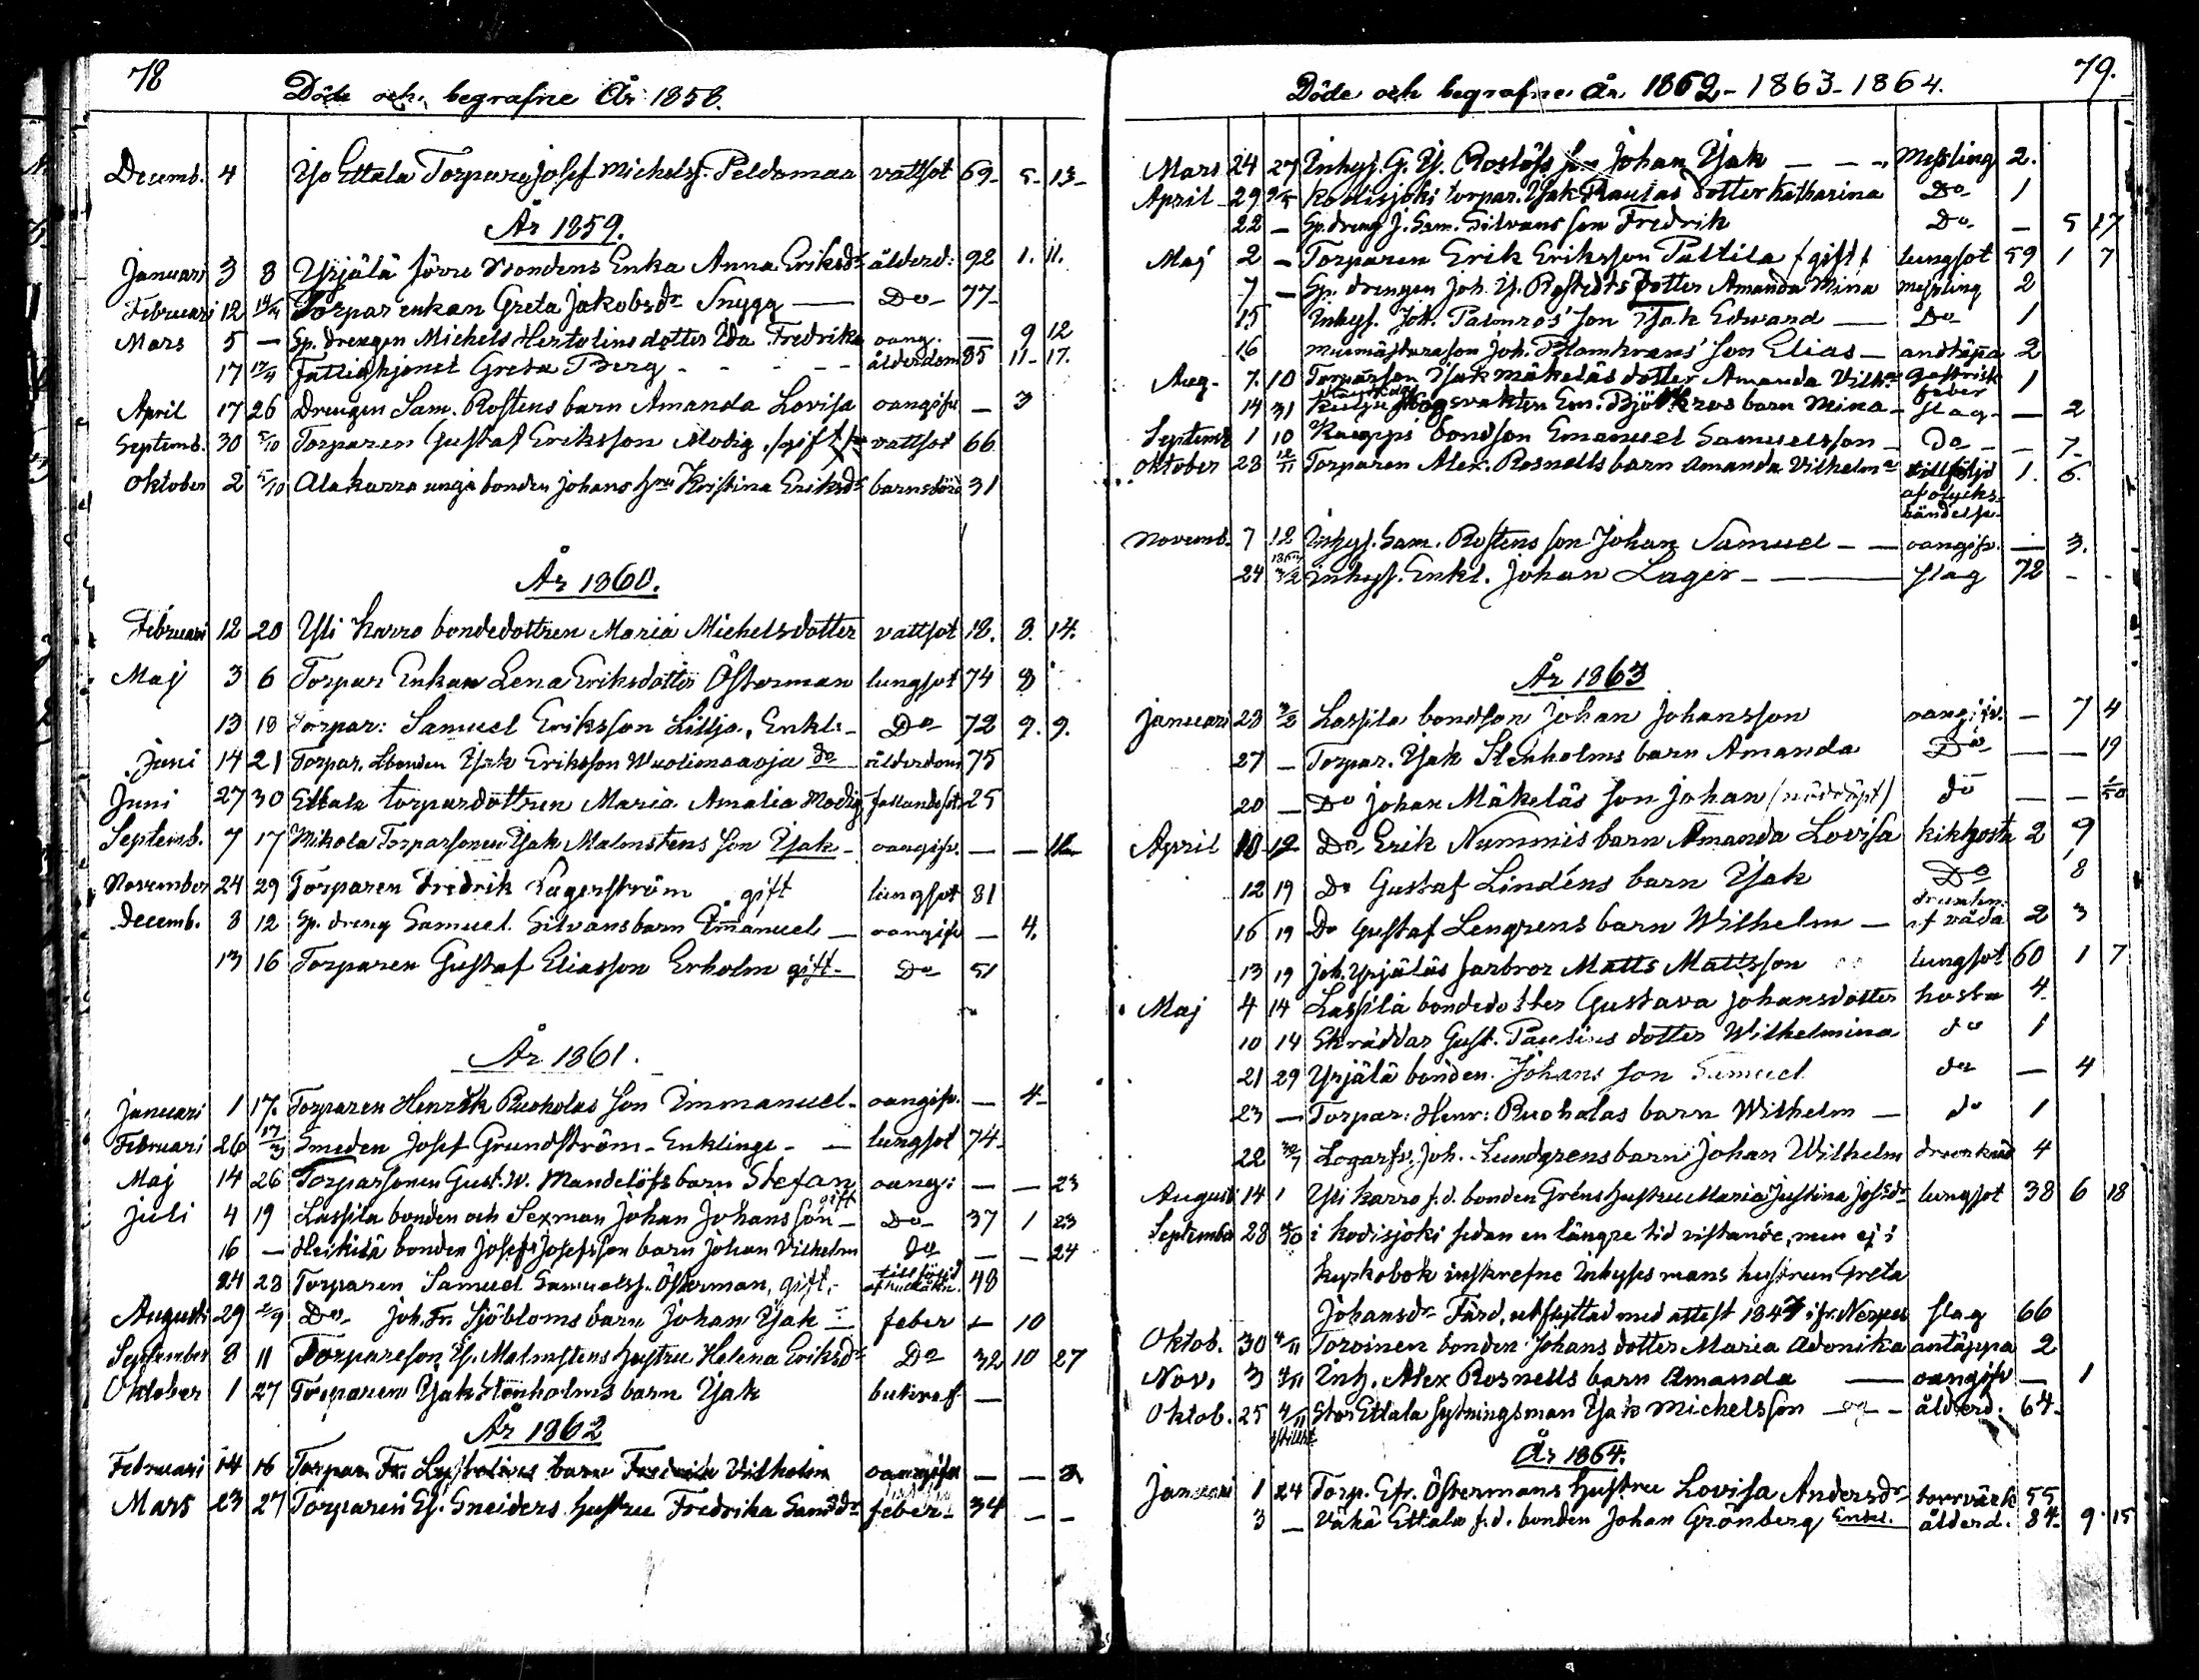 78
Döde och begrafne År 1858.
Decemb. 4 Yso Ettala Torparen Josef Michelss. Peldomaa vattsot 69 - 5 - 13 -
År 1859.
Januari 3 8 Yrjälä Enka Anna Eriksdr ålderd: 92 1. 11.
Februari 12 Torpar enkan Greta Jakobsdr Snygg — Do - 77 -
Mars 5 — Sp. drengen Michels dotter Ida Fredrika oang. — 9 12
17 Fattighjonet Greta Berg - - - - - ålderdom 85 11 - 17.
April 17 26 Drengen Sam. Rostens barn Amanda Lovisa oangifv — 3
Septemb. 30 5/10 Torparen Gustaf Eriksson Modig gift vattsot 66
Oktober 2 5/10 Alakarra unga bonden Johans hru Kristina Eriksdr barnsbörd 31
År 1860.
Februari 12 20 Yli Karro bondedottren Maria Michelsdotter vattsot 18. 8. 14.
Maj 3 6 Torpar Enkan Lena Eriksdotter Österman lungsot 74 8
13 18 Torpar: Samuel Eriksson Lillja, Enkl: - Do - 72 9. 9.
Juni 14 21 Torpar. Ysak Eriksson Wuolimaaoja do ålderdom 75
Juni 27 30 Ettala torpardottren Maria Amalia Modig fallandesot 25
Septemb. 7 17 Mikola Torparsonen Ysak Malmstens son Ysak - oangifv. — —
November 24 29 Torparen Fredrik Lagerström gift lungsot 81
Decemb. 8 12 Sp. dreng Samuel Silvans barn Emanuel — oangifv — 4.
13 16 Torparen Gustaf Eliasson Erholm gift - Do 51
År 1861.
Januari 1 17. Torparen Henrik Ruoholas son Immanuel - oangifv. — 4 -
Februari 26 17/3 Smeden Josef Grundström - Enklinge - — lungsot 74 -
Maj 14 26 Torparsonen Gust. W. Mandelöfs barn Stefan oangi: — — 23
Juli 4 19 Lassila bonden och Sexman Johan Johansson gift — Do - 37 1 23
16 — Heikilä bonden Josef Josefsson barn Johan Vilhelm do — — 24
24 28 Torparen Samuel Samuelss. Österman, gift. till följd af 48
Augusti 29 2/9 Do - Joh. Fr. Sjöbloms barn Johan Ysak — feber — 10
September 8 11 Torpareson Ys. Malmstens hustru Helena Eriksdr Do 32 10 27
Oktober 1 27 Torparen Ysak Stenholms barn Ysak bukref —
År 1862
Februari 14 16 Torpar Fr. barn Fredrik Vilhelm oangifv — —
Mars 23 27 Torparen Ef. Sneiders hustru Fredrika Samdr feber - 34 — —
79.
Döde och begrafne År 1862 - 1863 - 1864.
Mars 24 27 Inhys. G. Y. Roslöfs son Johan Ysak — — - Messling 2.
April 29 9/5 Kodisjoki torpar. Ysak Rautas dotter Katharina Do 1
22 — Sp. dreng J. Sam. Silvans son Fredrik Do — 5 17
Maj 2 — Torparen Erik Eriksson Paltila gift lungsot 59 1 7
7 — Sp. drengen Joh. Y. Rostedts Dotter Amanda Mina messling 2
15 Inhys. Joh. Palmros' son Isak Edward — Do 1
16 Murmästareson Joh. Blomkvens' son Elias — andtäppa 2
Aug - 7. 10 Torparson Isak Mäkeläs dotter Amanda Vilhna Gastrisk feber 1
14 31 Skogsvakten Em. Björkros barn Mina - slag - — 2
Septemb. 1 10 Kauppi bondson Emanuel Samuelsson — Do - — 7
Oktober 28 12/11 Torparen Alex. Rosnells barn Amanda Vilhelma till följd af olyckshändelse 1. 6.
Novemb. 7 12 Inhys. Sam. Rostens son Johan Samuel — — oangifv. — 3.
24 Inhys. Enkl. Johan Lager - — slag 72 - -
År 1863
Januari 23 Lassila bondson Johan Johansson oangifv. — 7 4
27 — Torpar. Ysak Stenholms barn Amanda Do — — 19
20 — Do Johan Mäkeläs son Johan (nöddöpt) do — —
April 10 12 Do Erik Nummis barn Amanda Lovisa kikhosta 2 9
12 19 Do Gustaf Lindéns barn Ysak Do 8
16 19 Do Gustaf Lengrens barn Wilhelm — drunkn. af våda 2 3
13 19 Joh. Yrjäläs farbror Matts Mattsson lungsot 60 1 7
Maj 4 14 Lassila bondedotter Gustava Johansdotter hosta 4
10 14 Skräddar Gust. Paulins dotter Wilhelmina do 1
21 29 Yrjälä bonden Johans son Samuel do — 4
23 — Torpar: Henr: Ruoholas barn Wilhelm — do 1
22 Joh. Lundgrens barn Johan Wilhelm drunknad 4
Augusti 14 1 Yli Karro f.d. bonden Gréns hustru Maria Justina lungsot 38 6 18
September 28 i Kodisjoki sedan en längre tid vistande, men ej i
kyrkobok inskrefne Inhysesmans hustrun Greta
Johansdr Färd, utflyttad med attest 1847 slag 66
Oktob. 30 4/11 Toroinen bonden Johans dotter Maria Adonika antäppa 2
Nov. 3 Inh. Alex Rosnells barn Amanda — oangifv — 1
Oktob. 25 4/11 Stor Ettala Sytningsman Ysak Michelsson - ålderd. 64 -
År 1864.
Januari 1 24 Torp. Efr. Östermans hustru Lovisa Andersdr torrvärk 55
3 — Vähä Ettala f.d. bonden Johan Grönberg Enkl. ålderd. 84 - 9 - 15